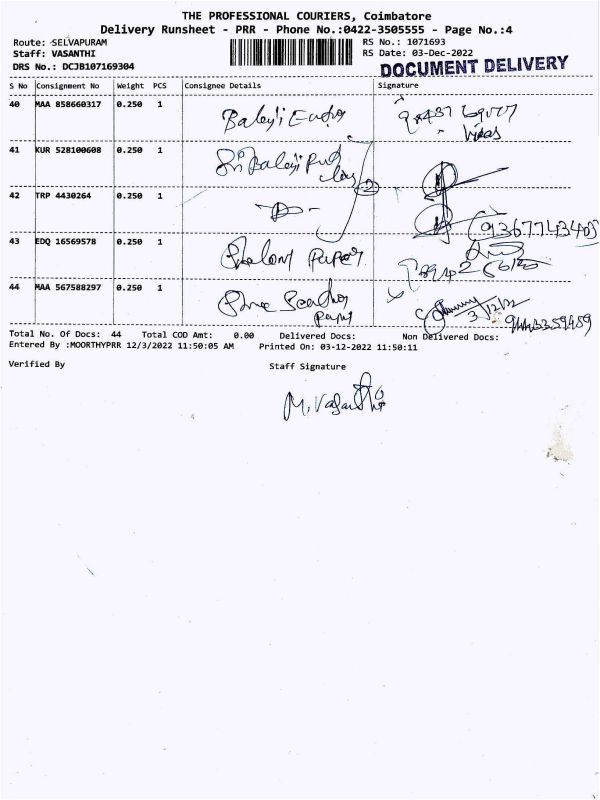 THE PROFESSIONAL COURIERS, Coimbatore
Delivery Runsheet - PRR - Phone No.:0422-3505555 - Page No.:4
Route: SELVAPURAM
RS No.: 1071693
Staff: VASANTHI
RS Date: 03-Dec-2022
DRS No.: DCJB107169304
DOCUMENT DELIVERY
S No Consignment No Weight PCS Consignee Details Signature
40 MAA 858660317 0.250 1 Balaji
41 KUR 528100608 0.250 1 Sri Balaji
2
42 TRP 4430264 0.250 1
43 EDQ 16569578 0.250 1 Paper
44 MAA 567588297 0.250 1 Shree
3/12/22
Total No. Of Docs: 44 Total COD Amt: 0.00 Delivered Docs: Non Delivered Docs:
Entered By :MOORTHYPRR 12/3/2022 11:50:05 AM Printed On: 03-12-2022 11:50:11
Verified By Staff Signature
M. Vasanthi